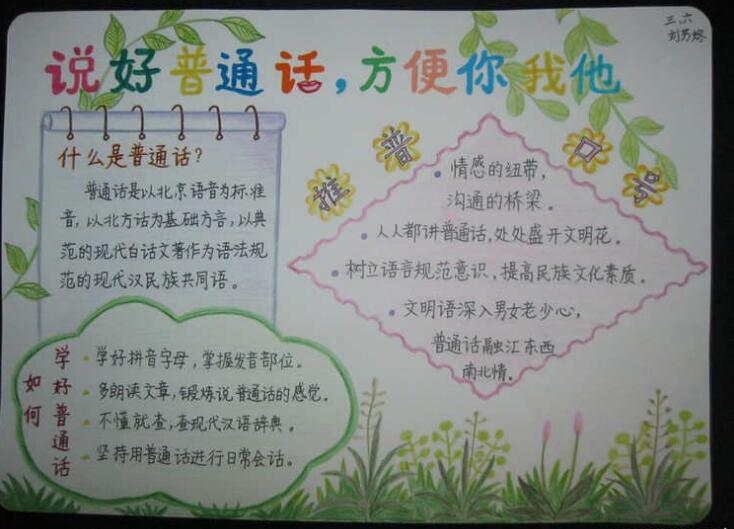 三.六
刘芳婷
说好普通话,方便你我他
什么是普通话?
普通话是以北京语音为标准
音,以北方话为基础方言,以典
范的现代白话文著作为语法规
范的现代汉民族共同语。
推普口号
情感的纽带,
沟通的桥梁。
人人都讲普通话,处处盛开文明花。
树立语言规范意识,提高民族文化素质。
文明语深入男女老少心,
普通话融汇东西
南北情。
如何学好普通话
学好拼音字母,掌握发音部位。
多朗读文章,锻炼说普通话的感觉。
不懂就查,查现代汉语辞典。
坚持用普通话进行日常会话。